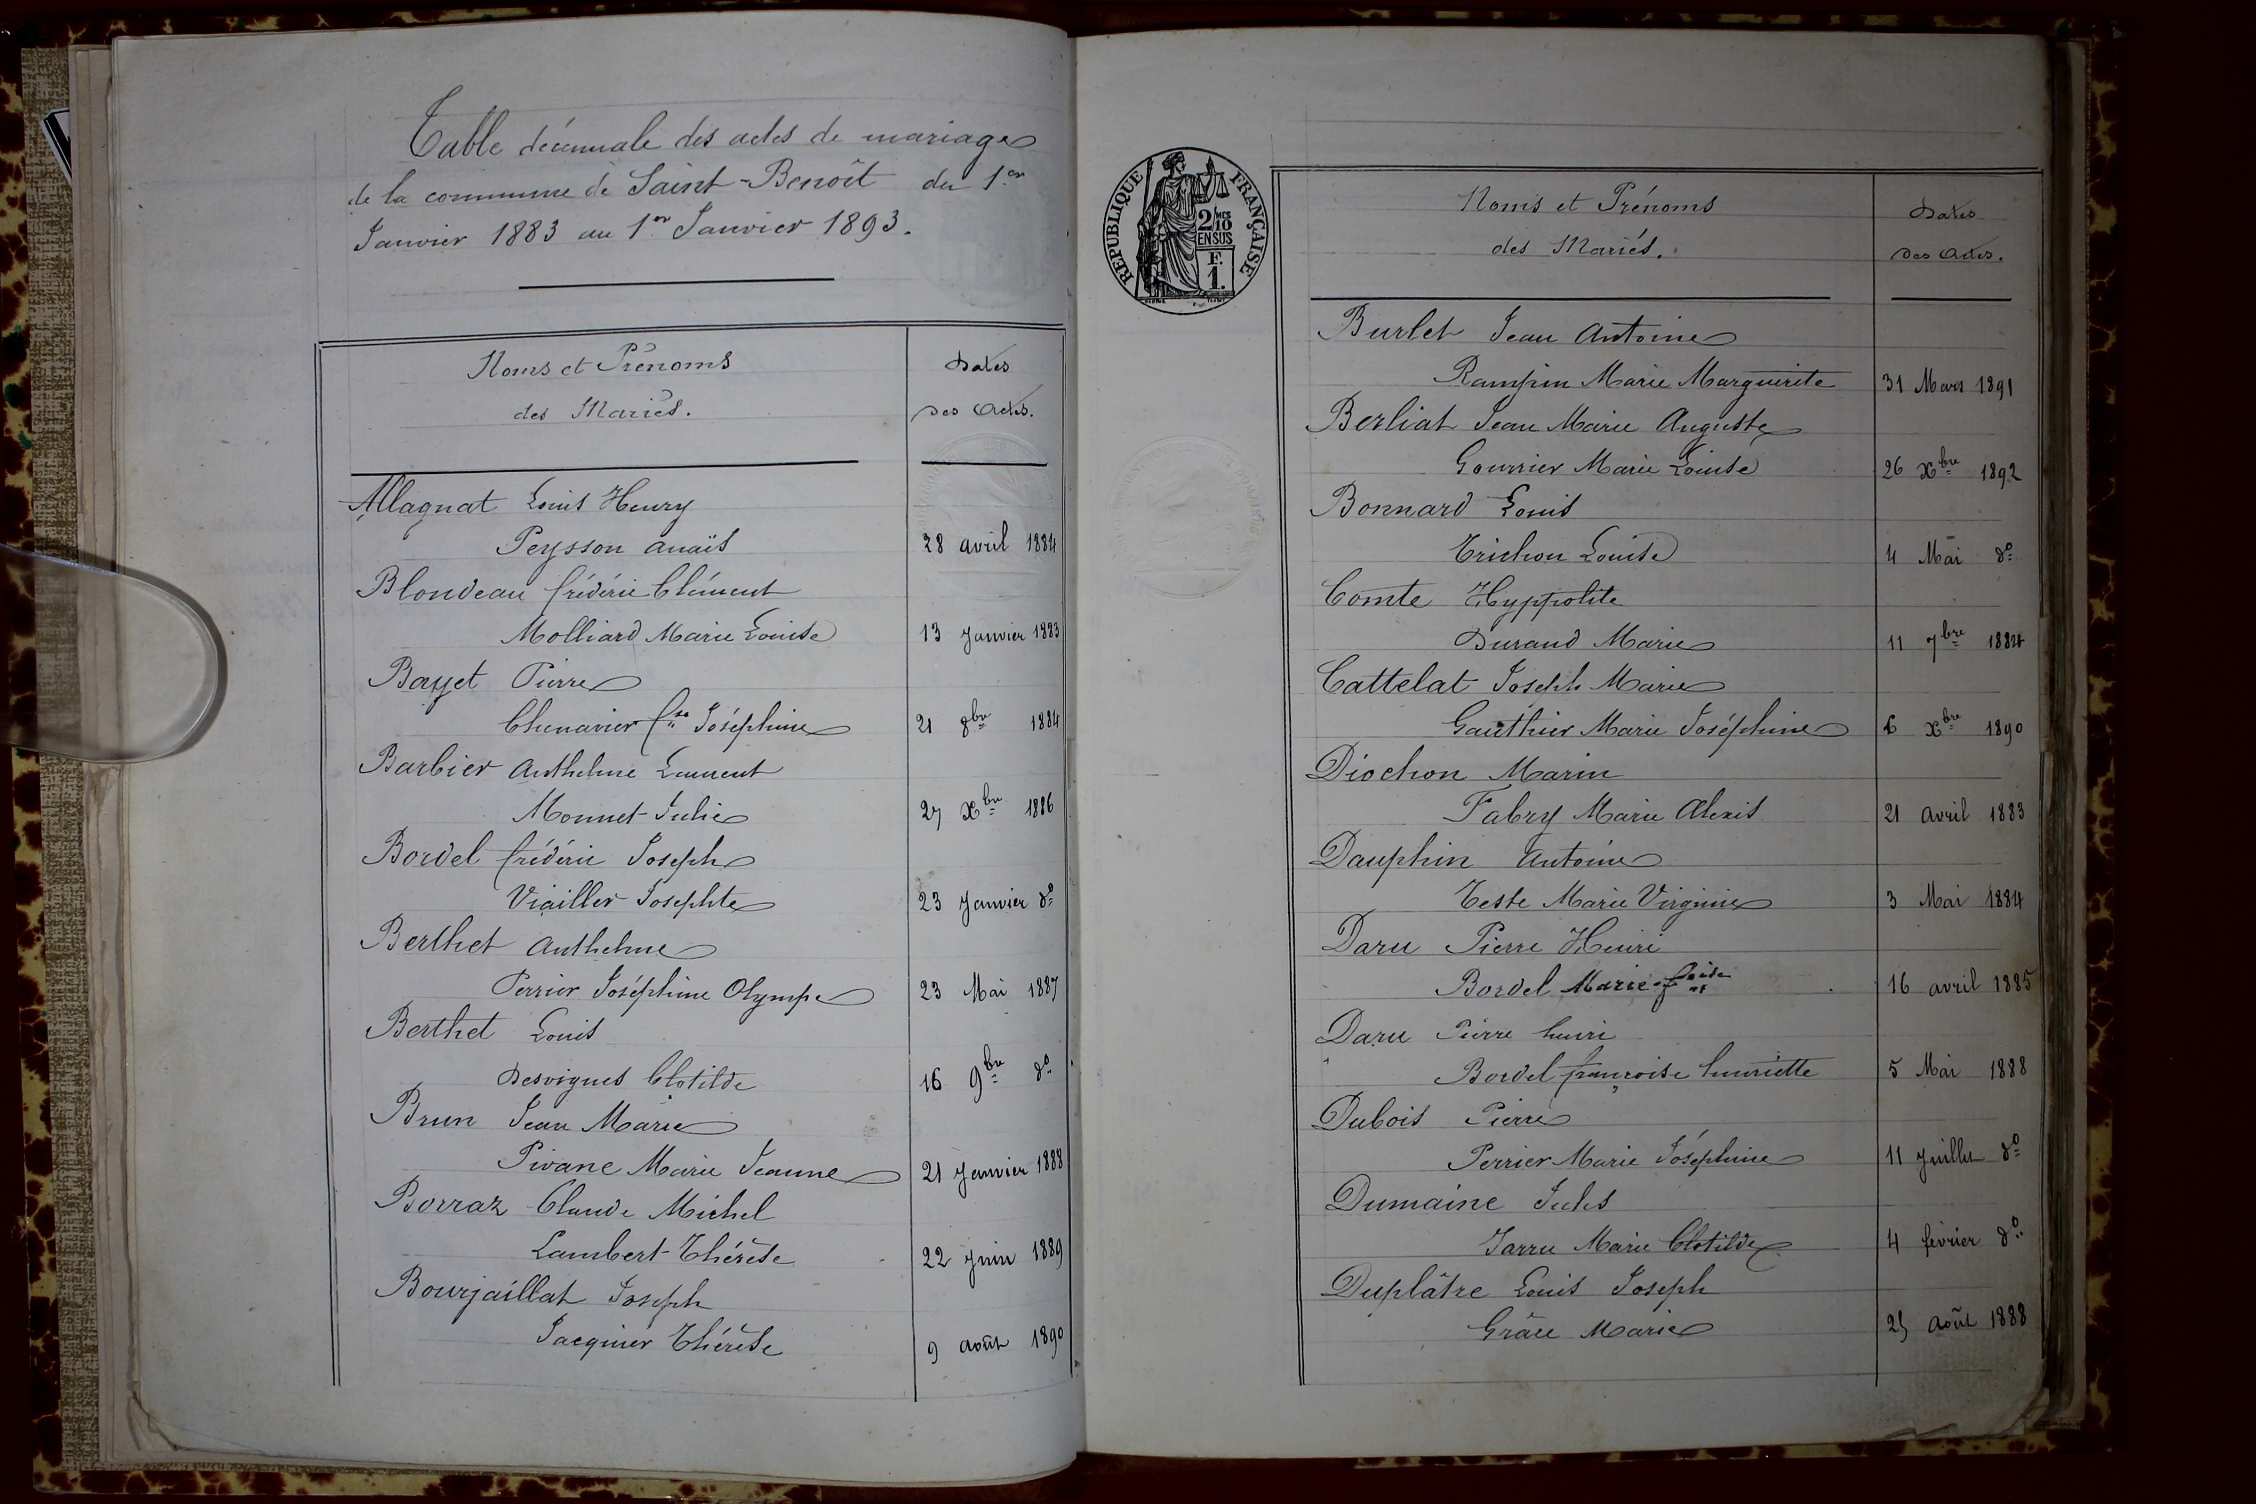 Table décennale des actes de mariages
de la commune de Saint-Benoît du 1er
Janvier 1883 au 1er Janvier 1893.
Noms et Prénoms
des Mariés.
Dates
des Actes.
Allagnat Louis Henry
Peysson Anaïs 28 avril 1884
Blondeau frédéric Clément
Molliard Marie Louise 13 Janvier 1883
Bayet Pierre
Chenavier fse Joséphine 21 8bre 1884
Barbier Anthelme Laurent
Monnet Julie 27 Xbre 1886
Bordel frédéric Joseph
Viailler Josephte 23 Janvier do
Berthet Anthelme
Perrier Joséphine Olympe 23 Mai 1887
Berthet Louis
Desvignes Clotilde 16 9bre do
Brun Jean Marie
Pivane Marie Jeanne 21 Janvier 1888
Borraz Claude Michel
Lambert Thérèse 22 Juin 1889
Bourjaillat Joseph
Jacquier Thérèse 9 août 1890
REPUBLIQUE FRANÇAISE
2/10MES
EN SUS
F.
1.
Noms et Prénoms
des Mariés.
Dates
des Actes.
Burlet Jean Antoine
Rampin Marie Marguerite 31 Mars 1891
Berliat Jean Marie Auguste
Gourrier Marie Louise 26 Xbre 1892
Bonnard Louis
Trichon Louise 4 Mai do
Comte Hyppolite
Durand Marie 11 7bre 1884
Cattelat Joseph Marie
Gauthier Marie Joséphine 6 Xbre 1890
Diochon Marin
Fabry Marie Alexis 21 avril 1883
Dauphin Antoine
Teste Marie Virginie 3 Mai 1884
Daru Pierre Henri
Bordel Marie 16 avril 1885
Daru Pierre henri
Bordel françoise henriette 5 Mai 1888
Dubois Pierre
Perrier Marie Joséphine 11 Juillet do
Dumaine Jules
Jarru Marie Clotilde 4 février do
Duplâtre Louis Joseph
Grâce Marie 25 août 1888